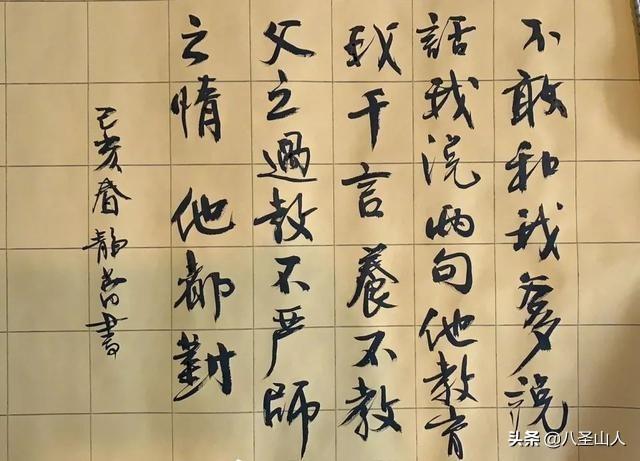 不敢和我爹説
話我説兩句他教育
我千言養不教
父之過教不严師
之情他都對
己亥春靜書
头条@八圣山人